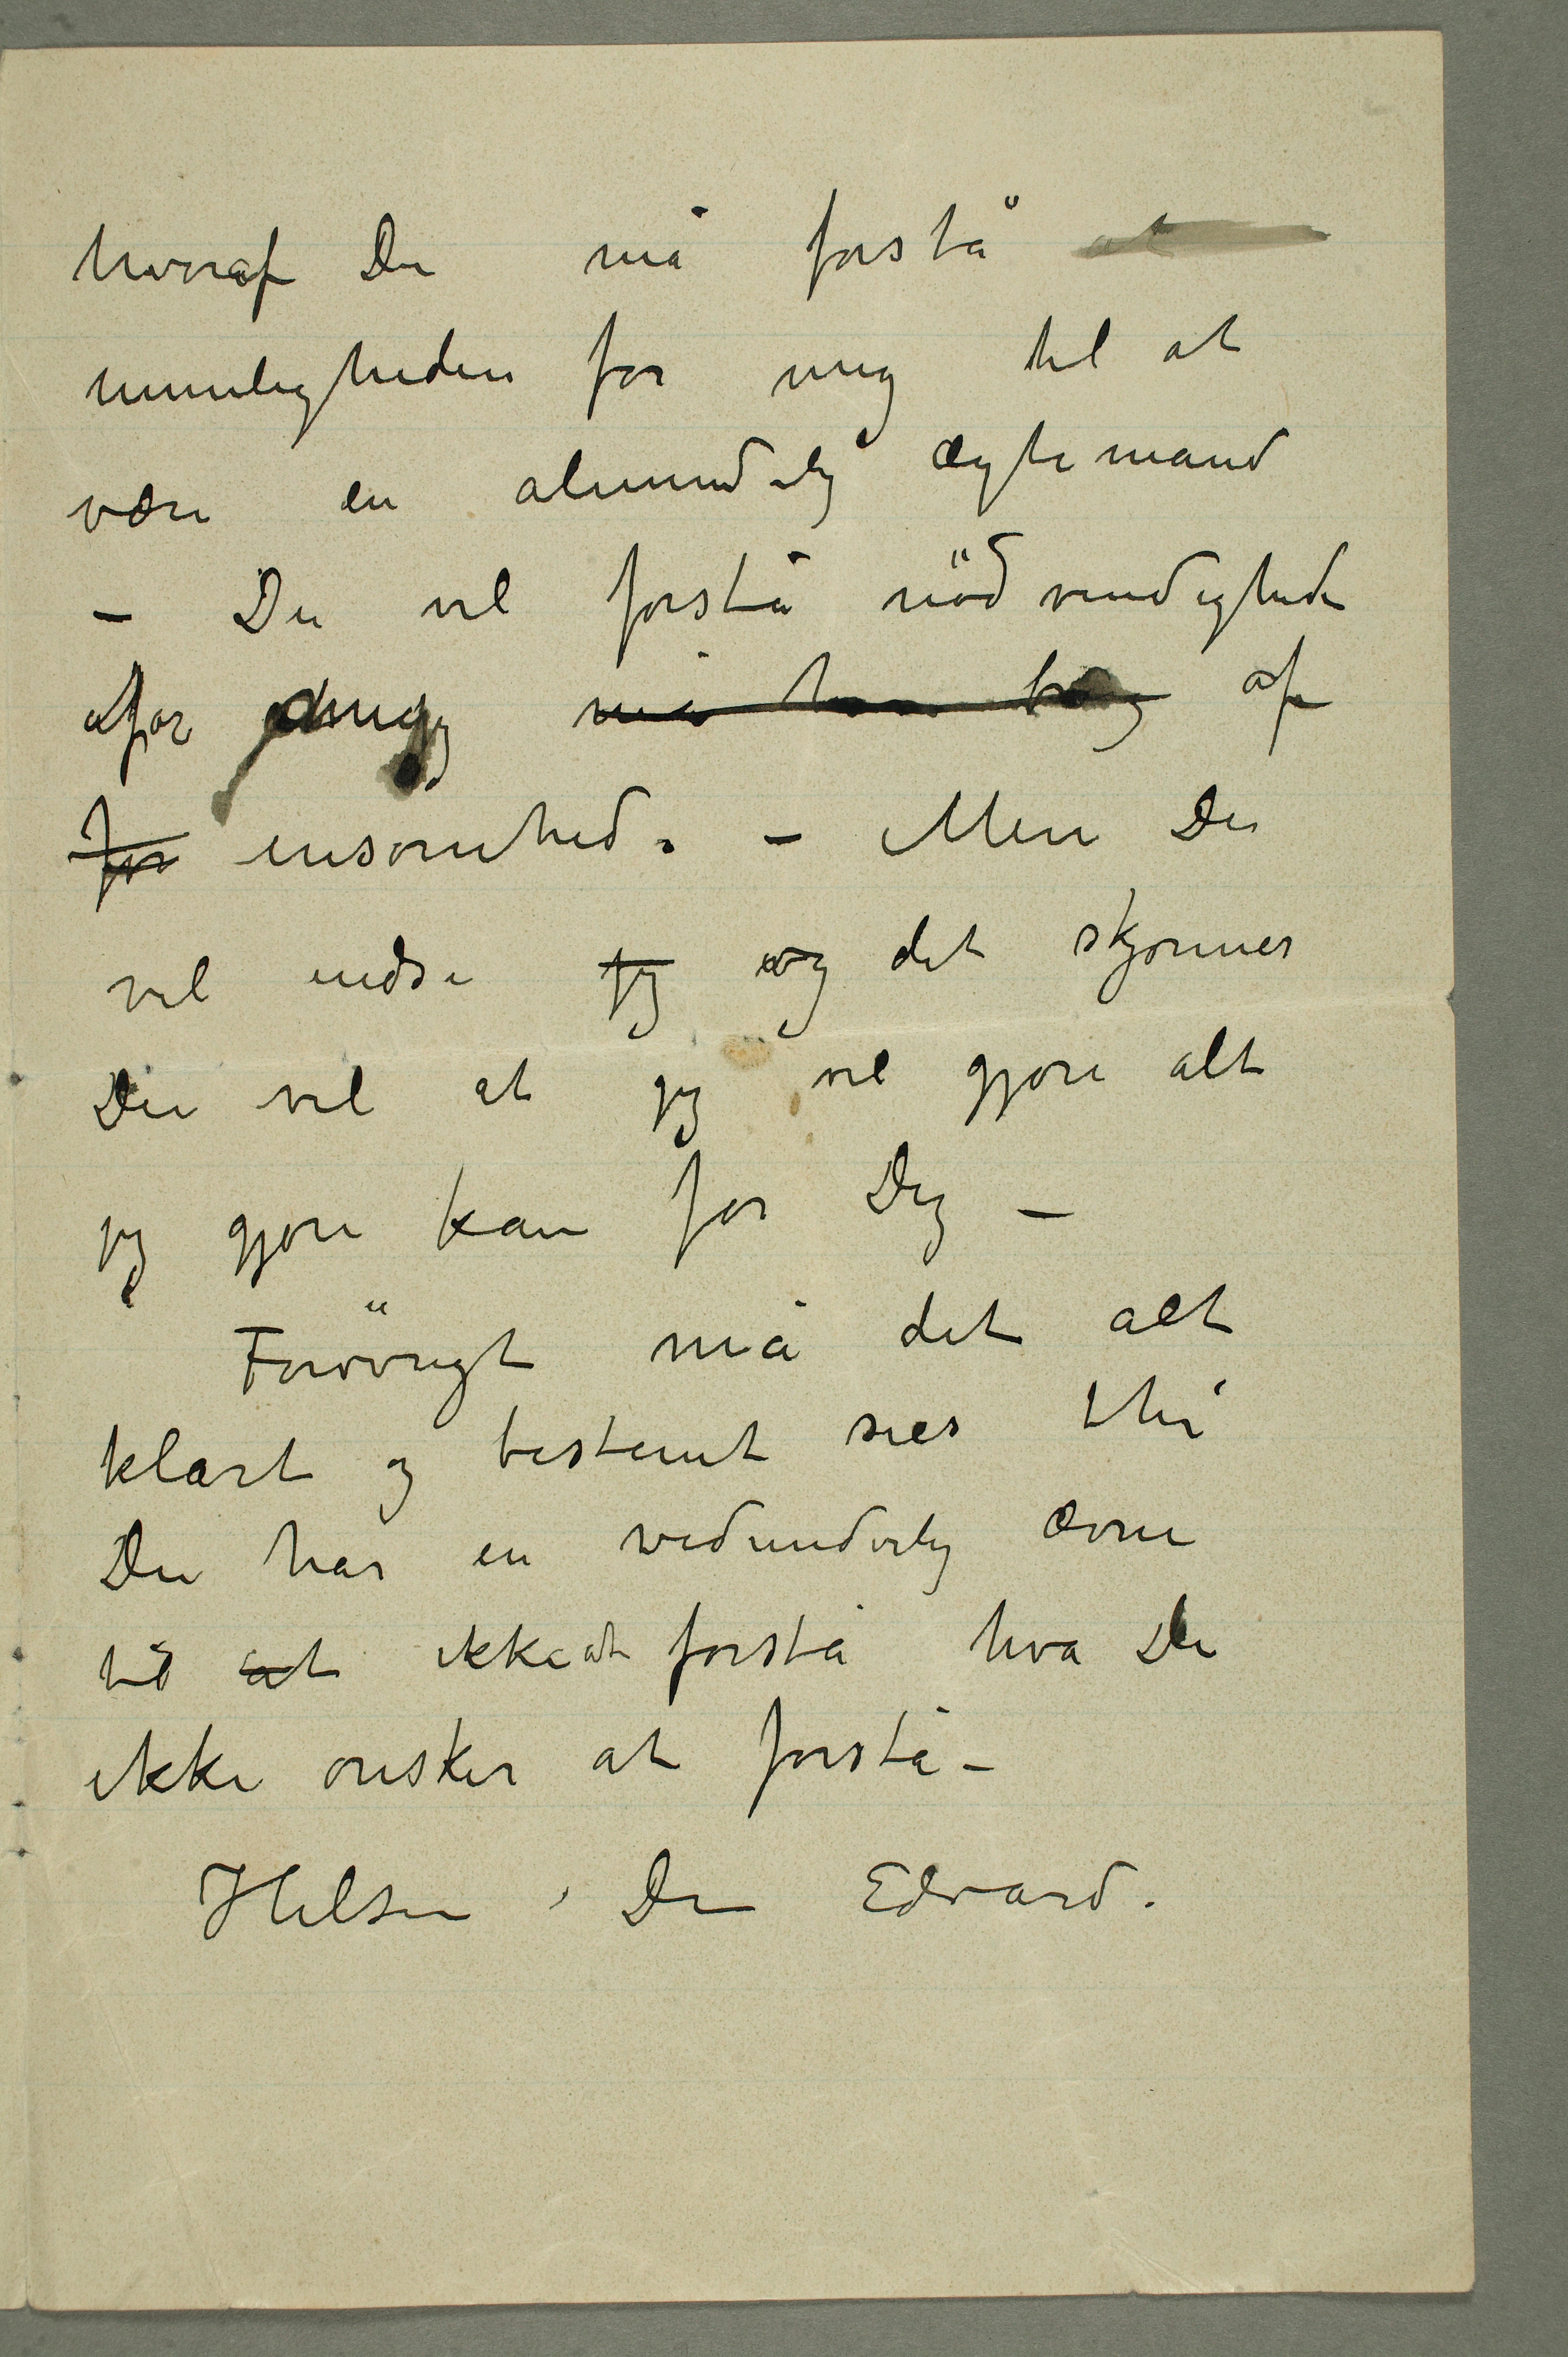 hvoraf Du må forstå at
umuligheden for mig til at
være en almindelig ægtemand
– Du vil forstå nödvendigheden
for mig må af
for ensomhed. – Men Du
vil indse jeg og det skjønner
Du vel at jeg vil gjøre alt
jeg gjøre kan for Dig –
Forövrigt må det alt
klart og bestemt sies thi
Du har en vidunderlig ævne
til at ikke at forstå hva Du
ikke ønsker at forstå –
Hilsen Din Edvard.